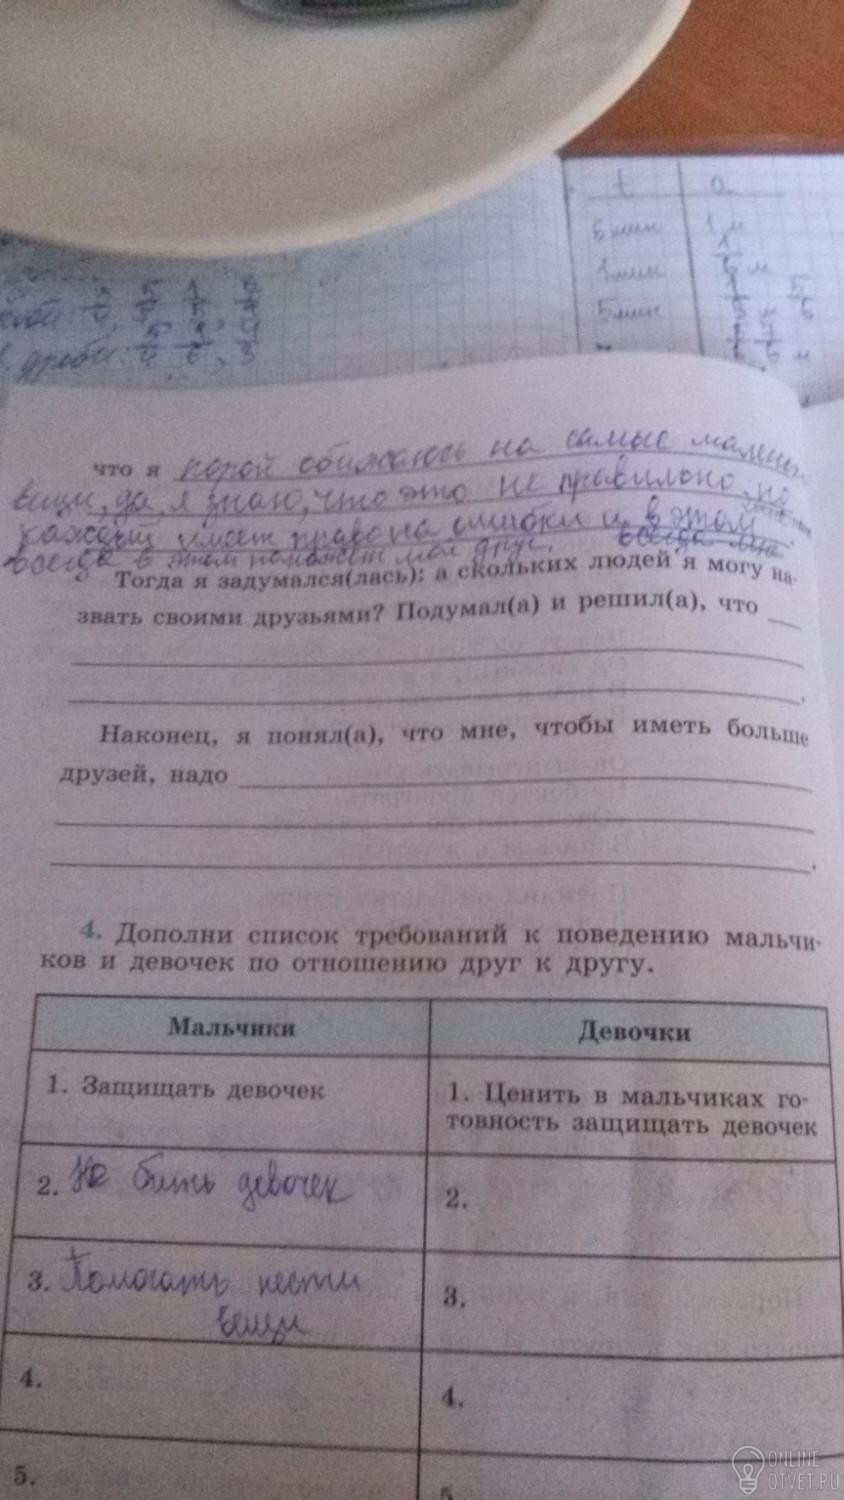 t a
6 мин 1 м
1 мин 1/6 м
5 мин 5/6 м
дроби:
что я порой обижаюсь на самые маленьк
вещи, да, я знаю, что это не правильно, но
каждый имеет право на ошибки и в этом
всегда в этом поможет мой друг.
Тогда я задумался(лась): а скольких людей я могу на-
звать своими друзьями? Подумал(а) и решил(а), что
Наконец, я понял(а), что мне, чтобы иметь больше
друзей, надо
4. Дополни список требований к поведению мальчи-
ков и девочек по отношению друг к другу.
Мальчики Девочки
1. Защищать девочек
1. Ценить в мальчиках го-
товность защищать девочек
2. Не бить девочек
2.
3. Помогать нести
вещи
3.
4.
4.
5.
5.
ONLINE
OTVET.RU